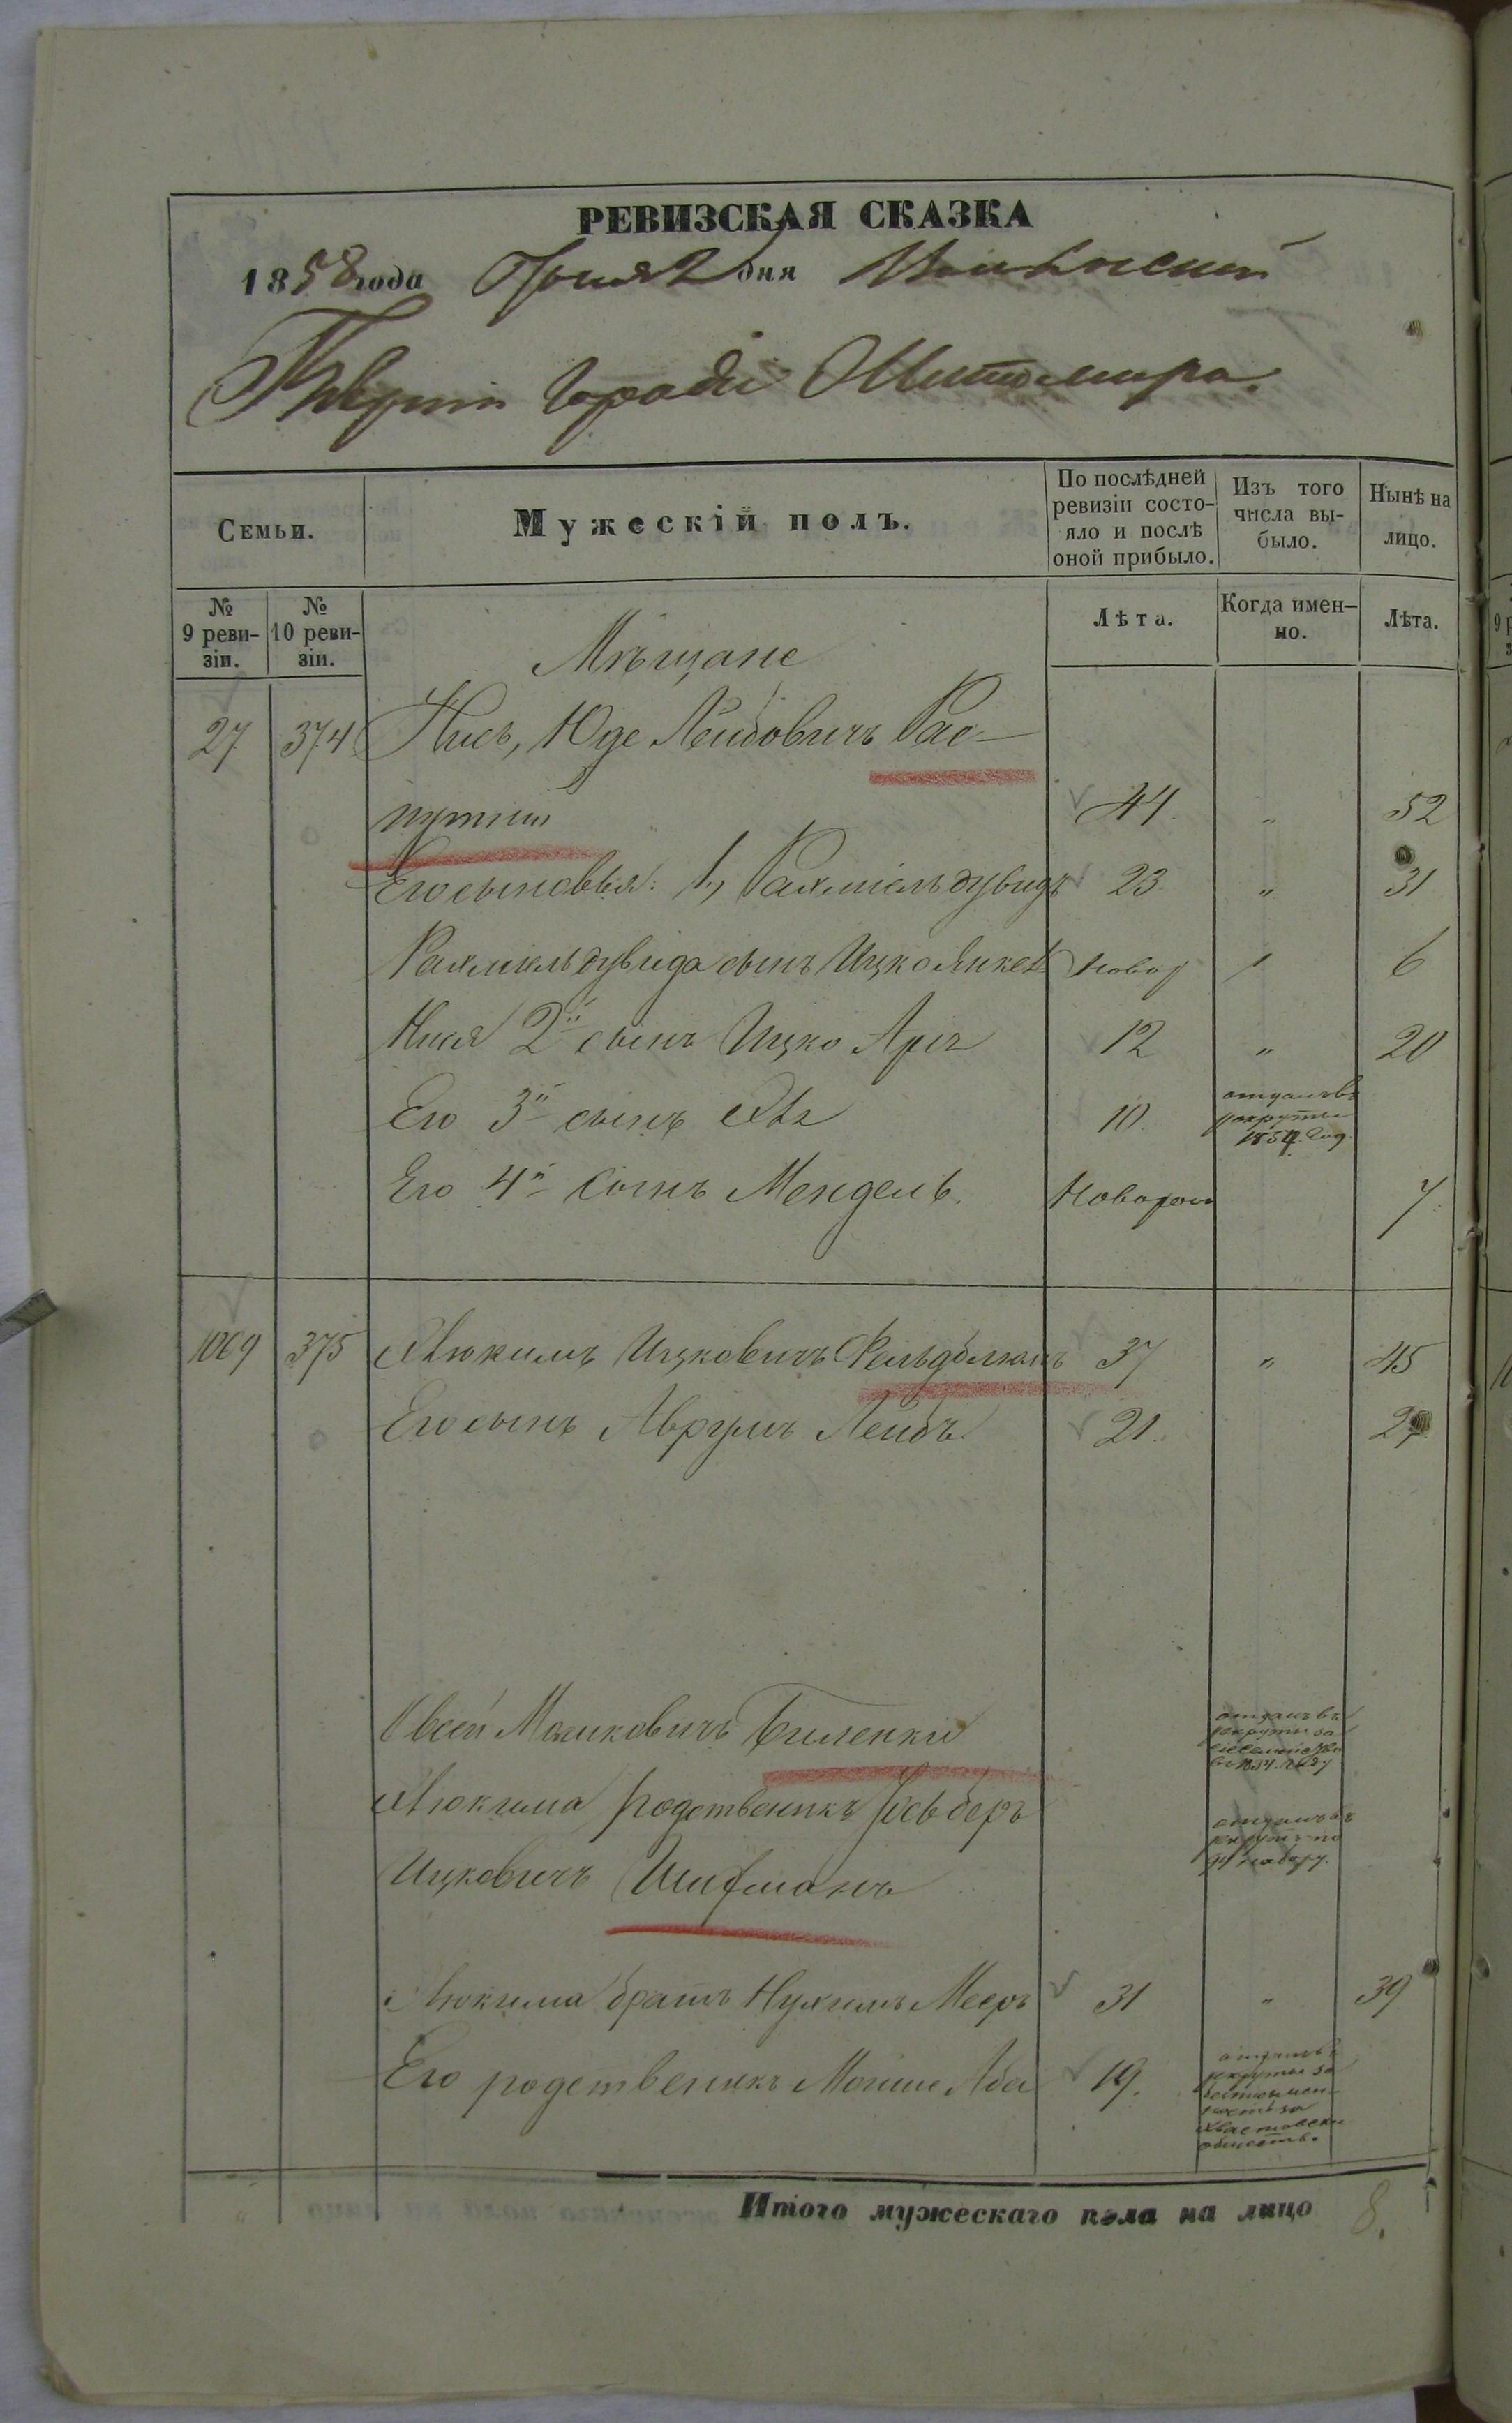 РЕВИЗСКАЯ СКАЗКА
1858 года Июня 2 дня Волынской
Губерніи города Житомира.
Семьи.
Мужескій полъ.
По послѣдней ревизіи состо-
яло и послѣ
оной прибыло.
Изъ того
числа вы-
было.
Нынѣ на
лицо.
№
9 реви-
зіи.
№
10 реви-
зіи.
Лѣта.
Когда имен-
но.
Лѣта.
Мѣщане
27 374 Нись, Юде Лейбовичъ Рас-
путній 44 " 52
Его сыновья: 1, Рахміель дувидъ 23 " 31
Рахміель дувида сынъ Ицко Янкель Новор " 6
Нися 2й сынъ Ицко Аріе 12 " 20
Его 3й сынъ 10. отданъ въ
рекруты
1854 год.
Его 4й сынъ Мендель. Новорож 7
1069 375 Ицковичъ Фельдблюмъ 37 " 45
Его сынъ Аврумъ Лейбъ 21. 29
Овсей Мошковичъ Биленкій отданъ въ
рекруты за
родственикъ Іось беръ
Ицковичъ Шифманъ отданъ въ
рекруты по
братъ Нухимъ Мееръ 31 " 39
Его родственикъ Мойше Аба 19. отданъ въ
рекруты за
общество
Итого мужескаго пола на лицо 8.